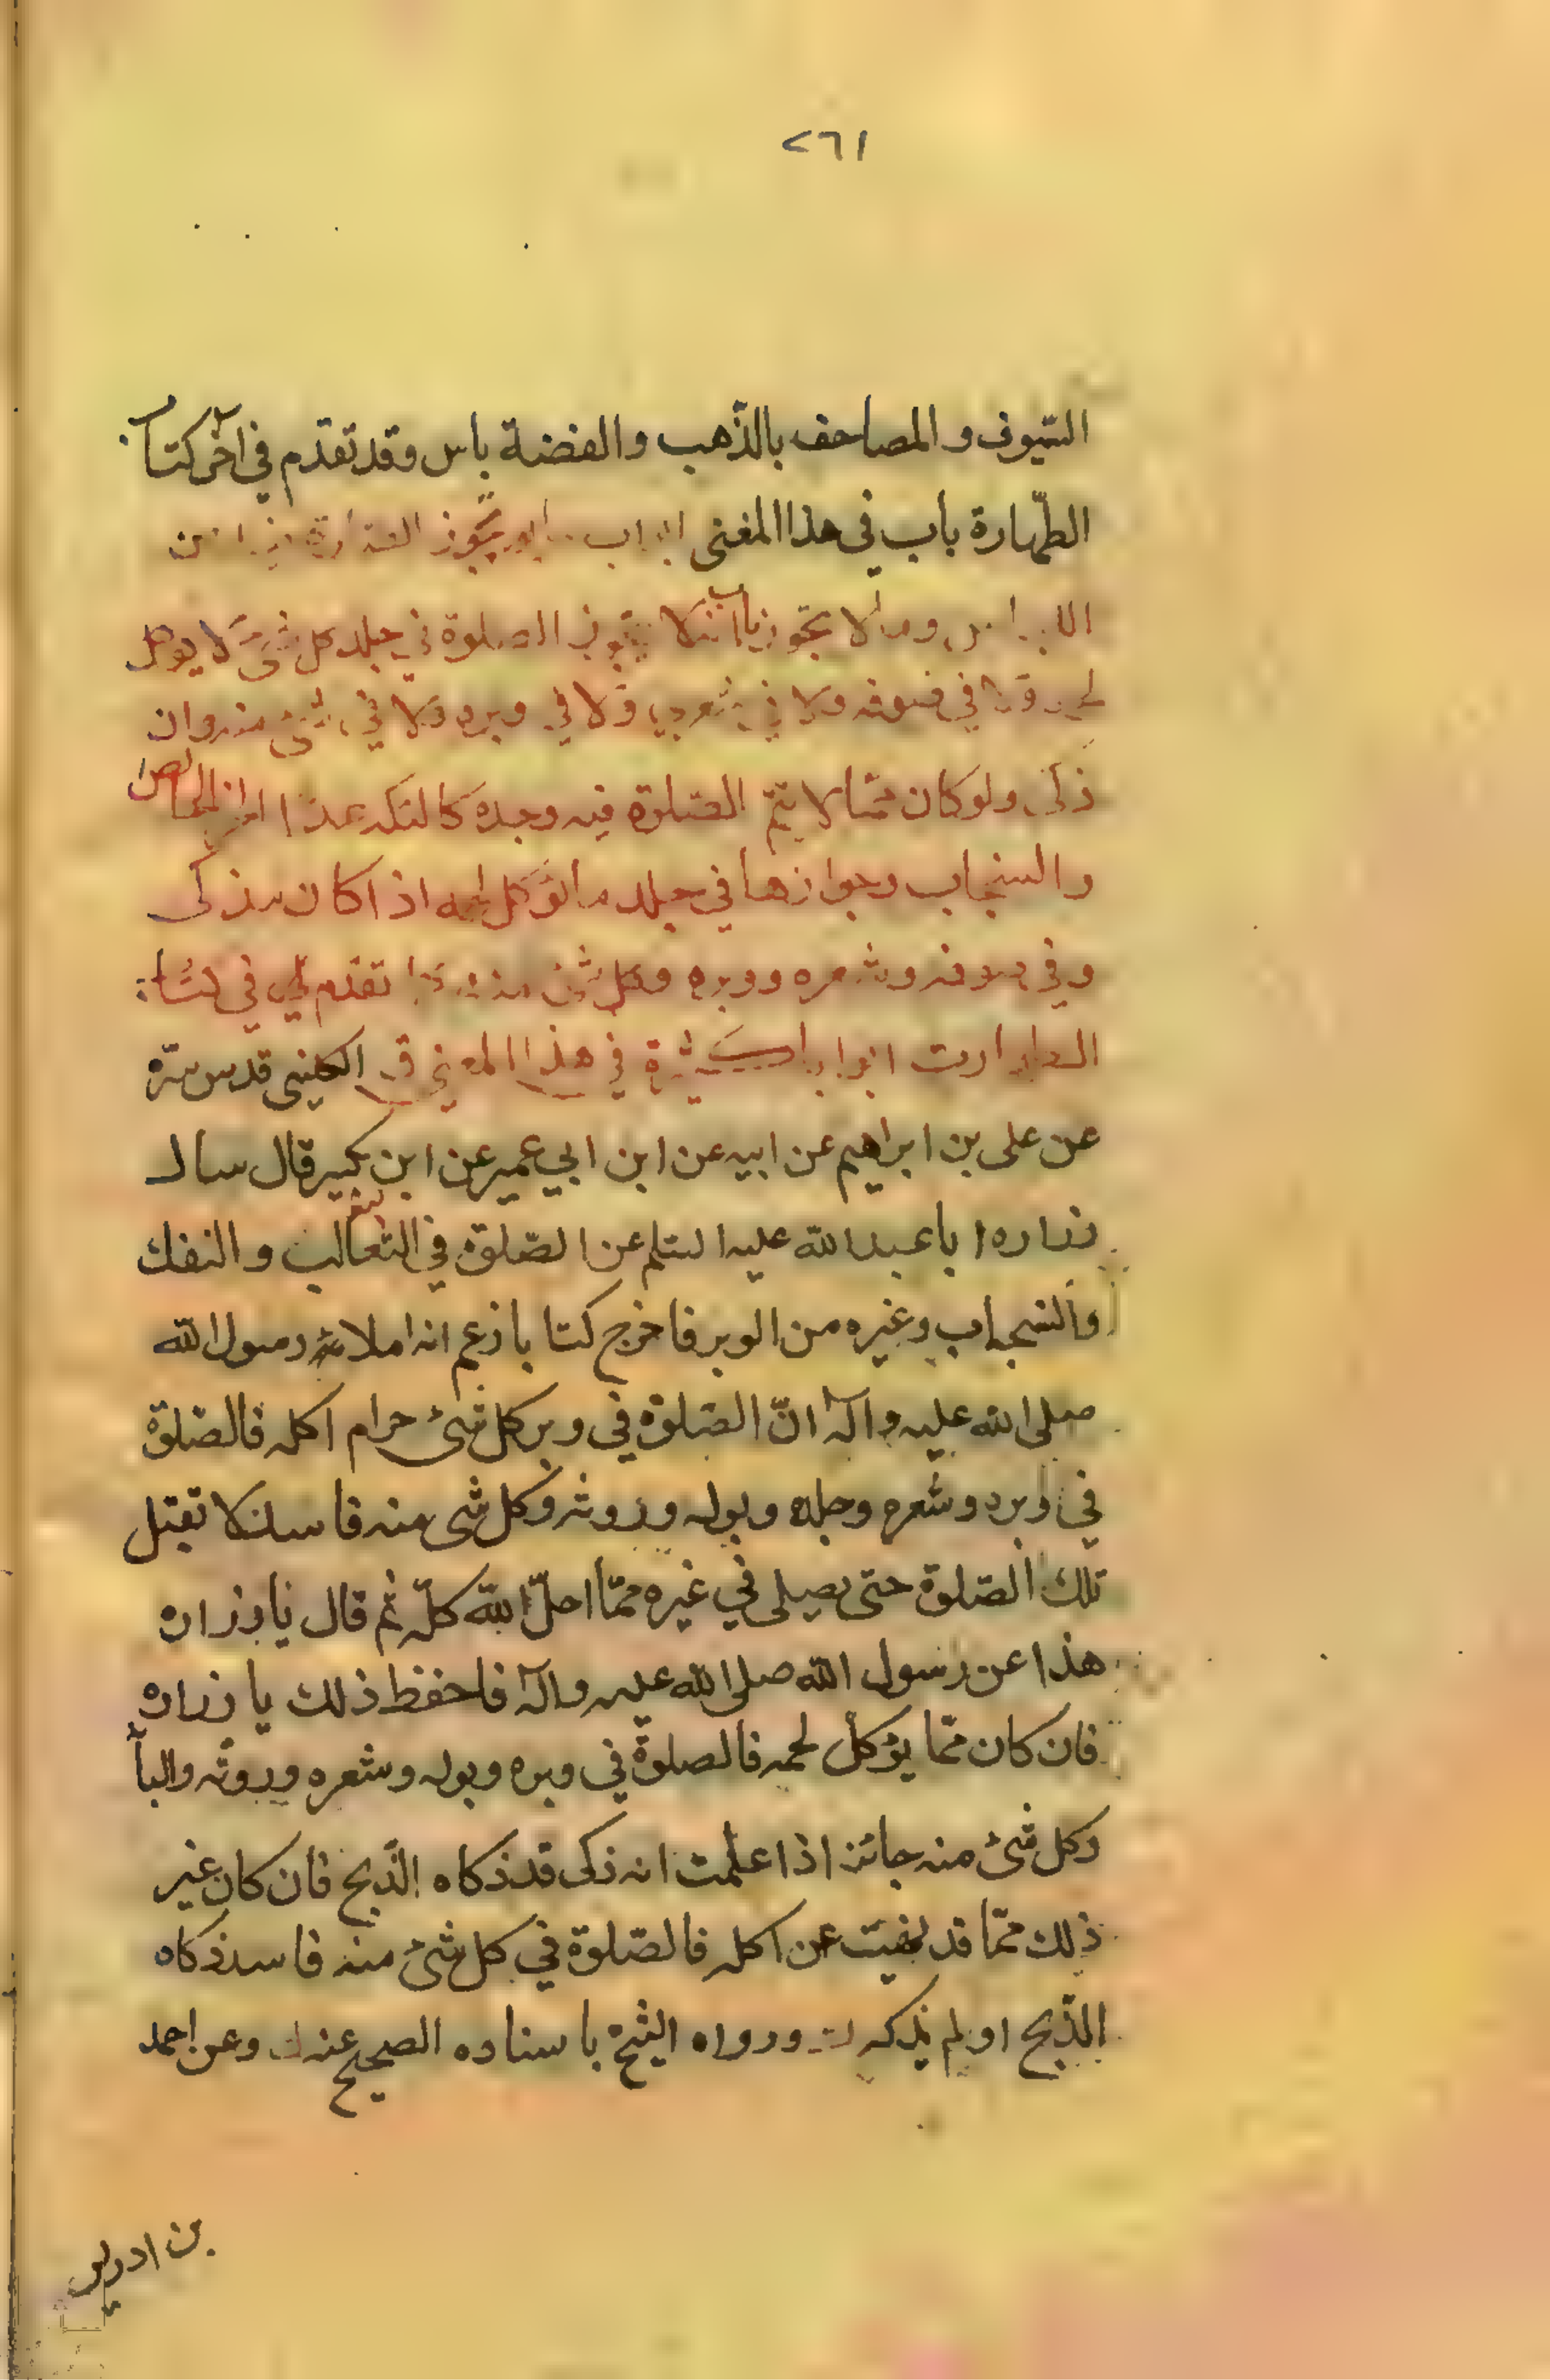 ٢٦١
السّيوف والمصاحف بالذّهب والفضة باس وقد تقدّم في آخر كتاب
الطّهارة باب في هذا المعنى ابواب يجوز
وما لا يجوز باب لا تجوز الصلوة في جلد كل شئ لا يوكل
ولا في صوفه ولا في شعره ولا في وبره ولا في شئ منه وان
ذكى ولو كان ممّا لا تتمّ الصّلوة فيه وحده كالتكه عدا
والسنجاب وجوازها في جلد ما يؤكل لحمه اذا كان مذكى
وفي صوفه وشعره ووبره وكل شئ منه تقدم في كتاب
الطهارت ابوابا كثيرة في هذا المعنى ق الكلينى قدس سرّه
عن على بن ابراهيم عن ابيه عن ابن ابي عمير عن ابن بكير قال سال
زراره ابا عبد الله عليه السّلم عن الصّلوة في الثعالب والنفك
والسنجاب وغيره من الوبر فاخرج كتابا زعم انه املاء رسول الله
صلى الله عليه وآله انّ الصّلوة في وبر كل شئ حرام اكله فالصّلوة
في وبره وشعره وجلده وبوله وروثه وكل شى منه فاسد لا تقبل
تلك الصّلوة حتى يصلى في غيره ممّا احلّ الله كلّه ثم قال يا زراره
هذا عن رسول الله صلى الله عليه وآله فاحفظ ذلك يا زراره
فان كان ممّا يؤكل لحمه فالصلوة في وبره وبوله وشعره وروثه والبا
وكل شئ منه جائز اذا علمت انه ذكى قد ذكاه الذّبح فان كان غير
ذلك ممّا قد نهيت عن اكله فالصّلوة في كل شئ منه فاسد ذكاه
الذّبح او لم يذكه ورواه الشّيخ باسناده الصحيح عنه وعن احمد
بن ادريس